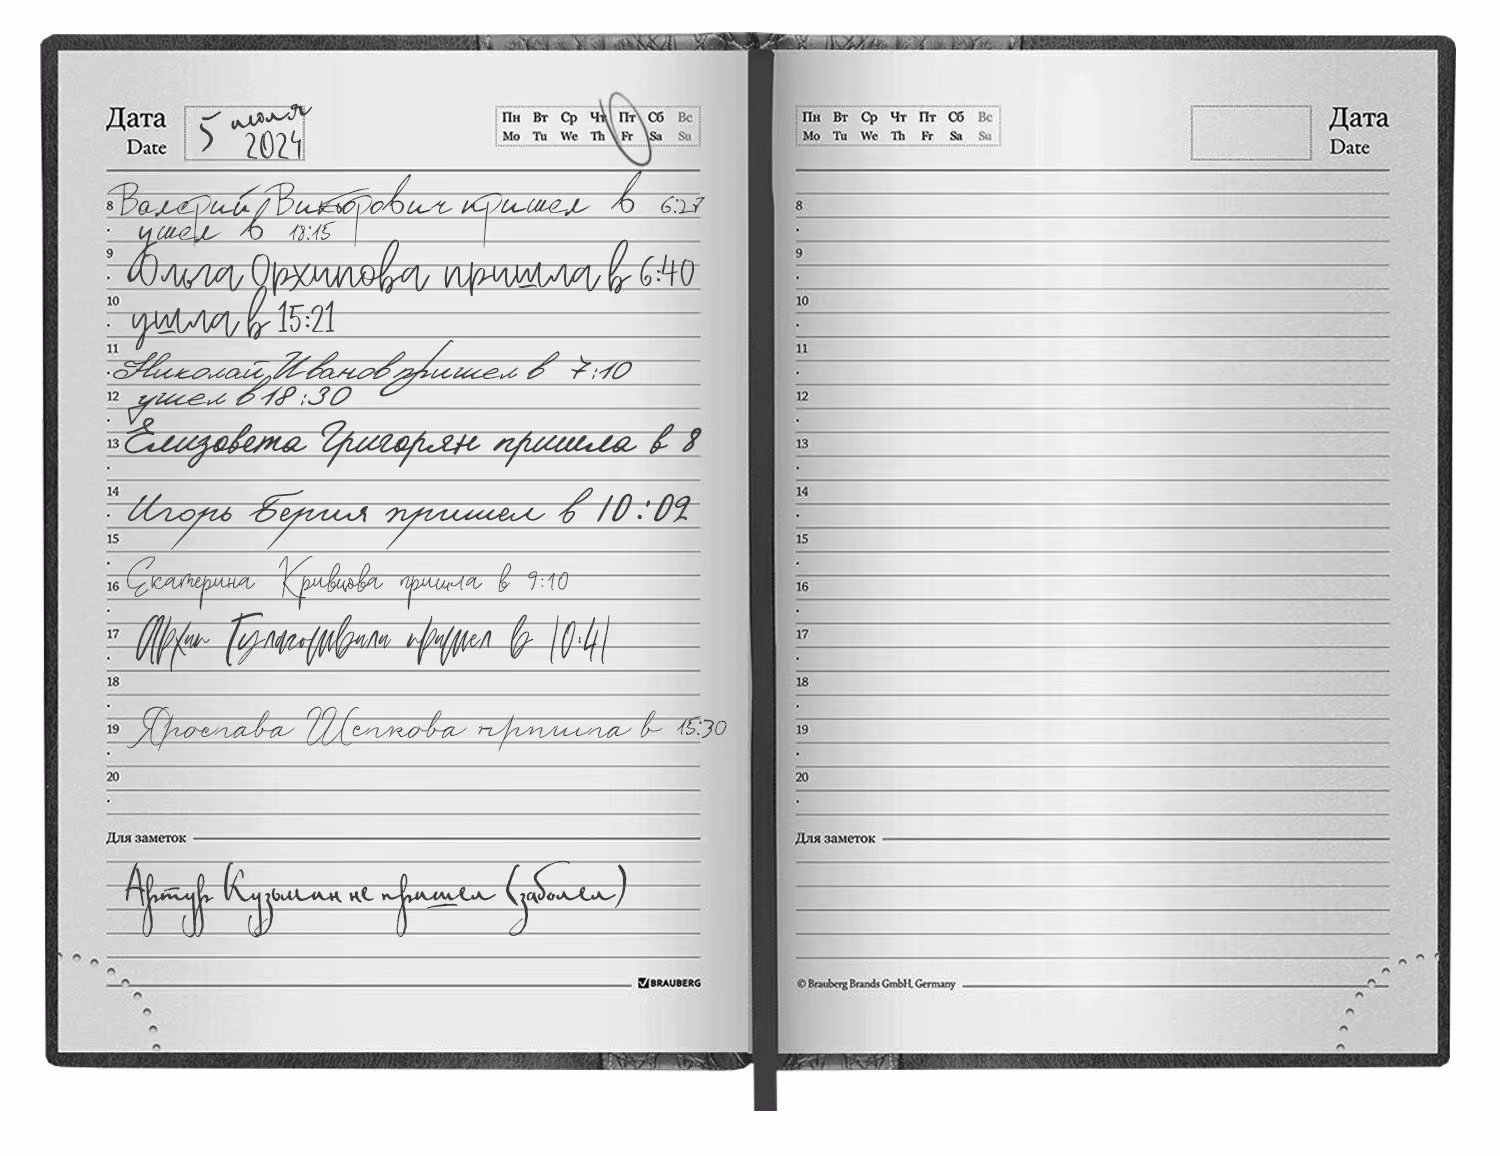 Дата
Date
5 июля
2024
Пн Вт Ср Чт Пт Сб Вс
Mo Tu We Th Fr Sa Su
8 Валерий Викторович пришел в 6:27
ушел в 18:15
9
Ольга Орхипова пришла в 6:40
10
ушла в 15:21
11
Николай Иванов пришел в 7:10
12 ушел в 18:30
13 Елизовета Григорян пришла в 8
14
Игорь Берия пришел в 10:02
15
16 Екатерина Кривцова пришла в 9:10
17 Архип Гулагошвили пришел в 10:41
18
19 Ярослава Щепкова пришла в 15:30
20
Для заметок
Артур Кузьмин не пришел (заболел)
BRAUBERG
Пн Вт Ср Чт Пт Сб Вс
Mo Tu We Th Fr Sa Su
Дата
Date
8
9
10
11
12
13
14
15
16
17
18
19
20
Для заметок
© Brauberg Brands GmbH, Germany